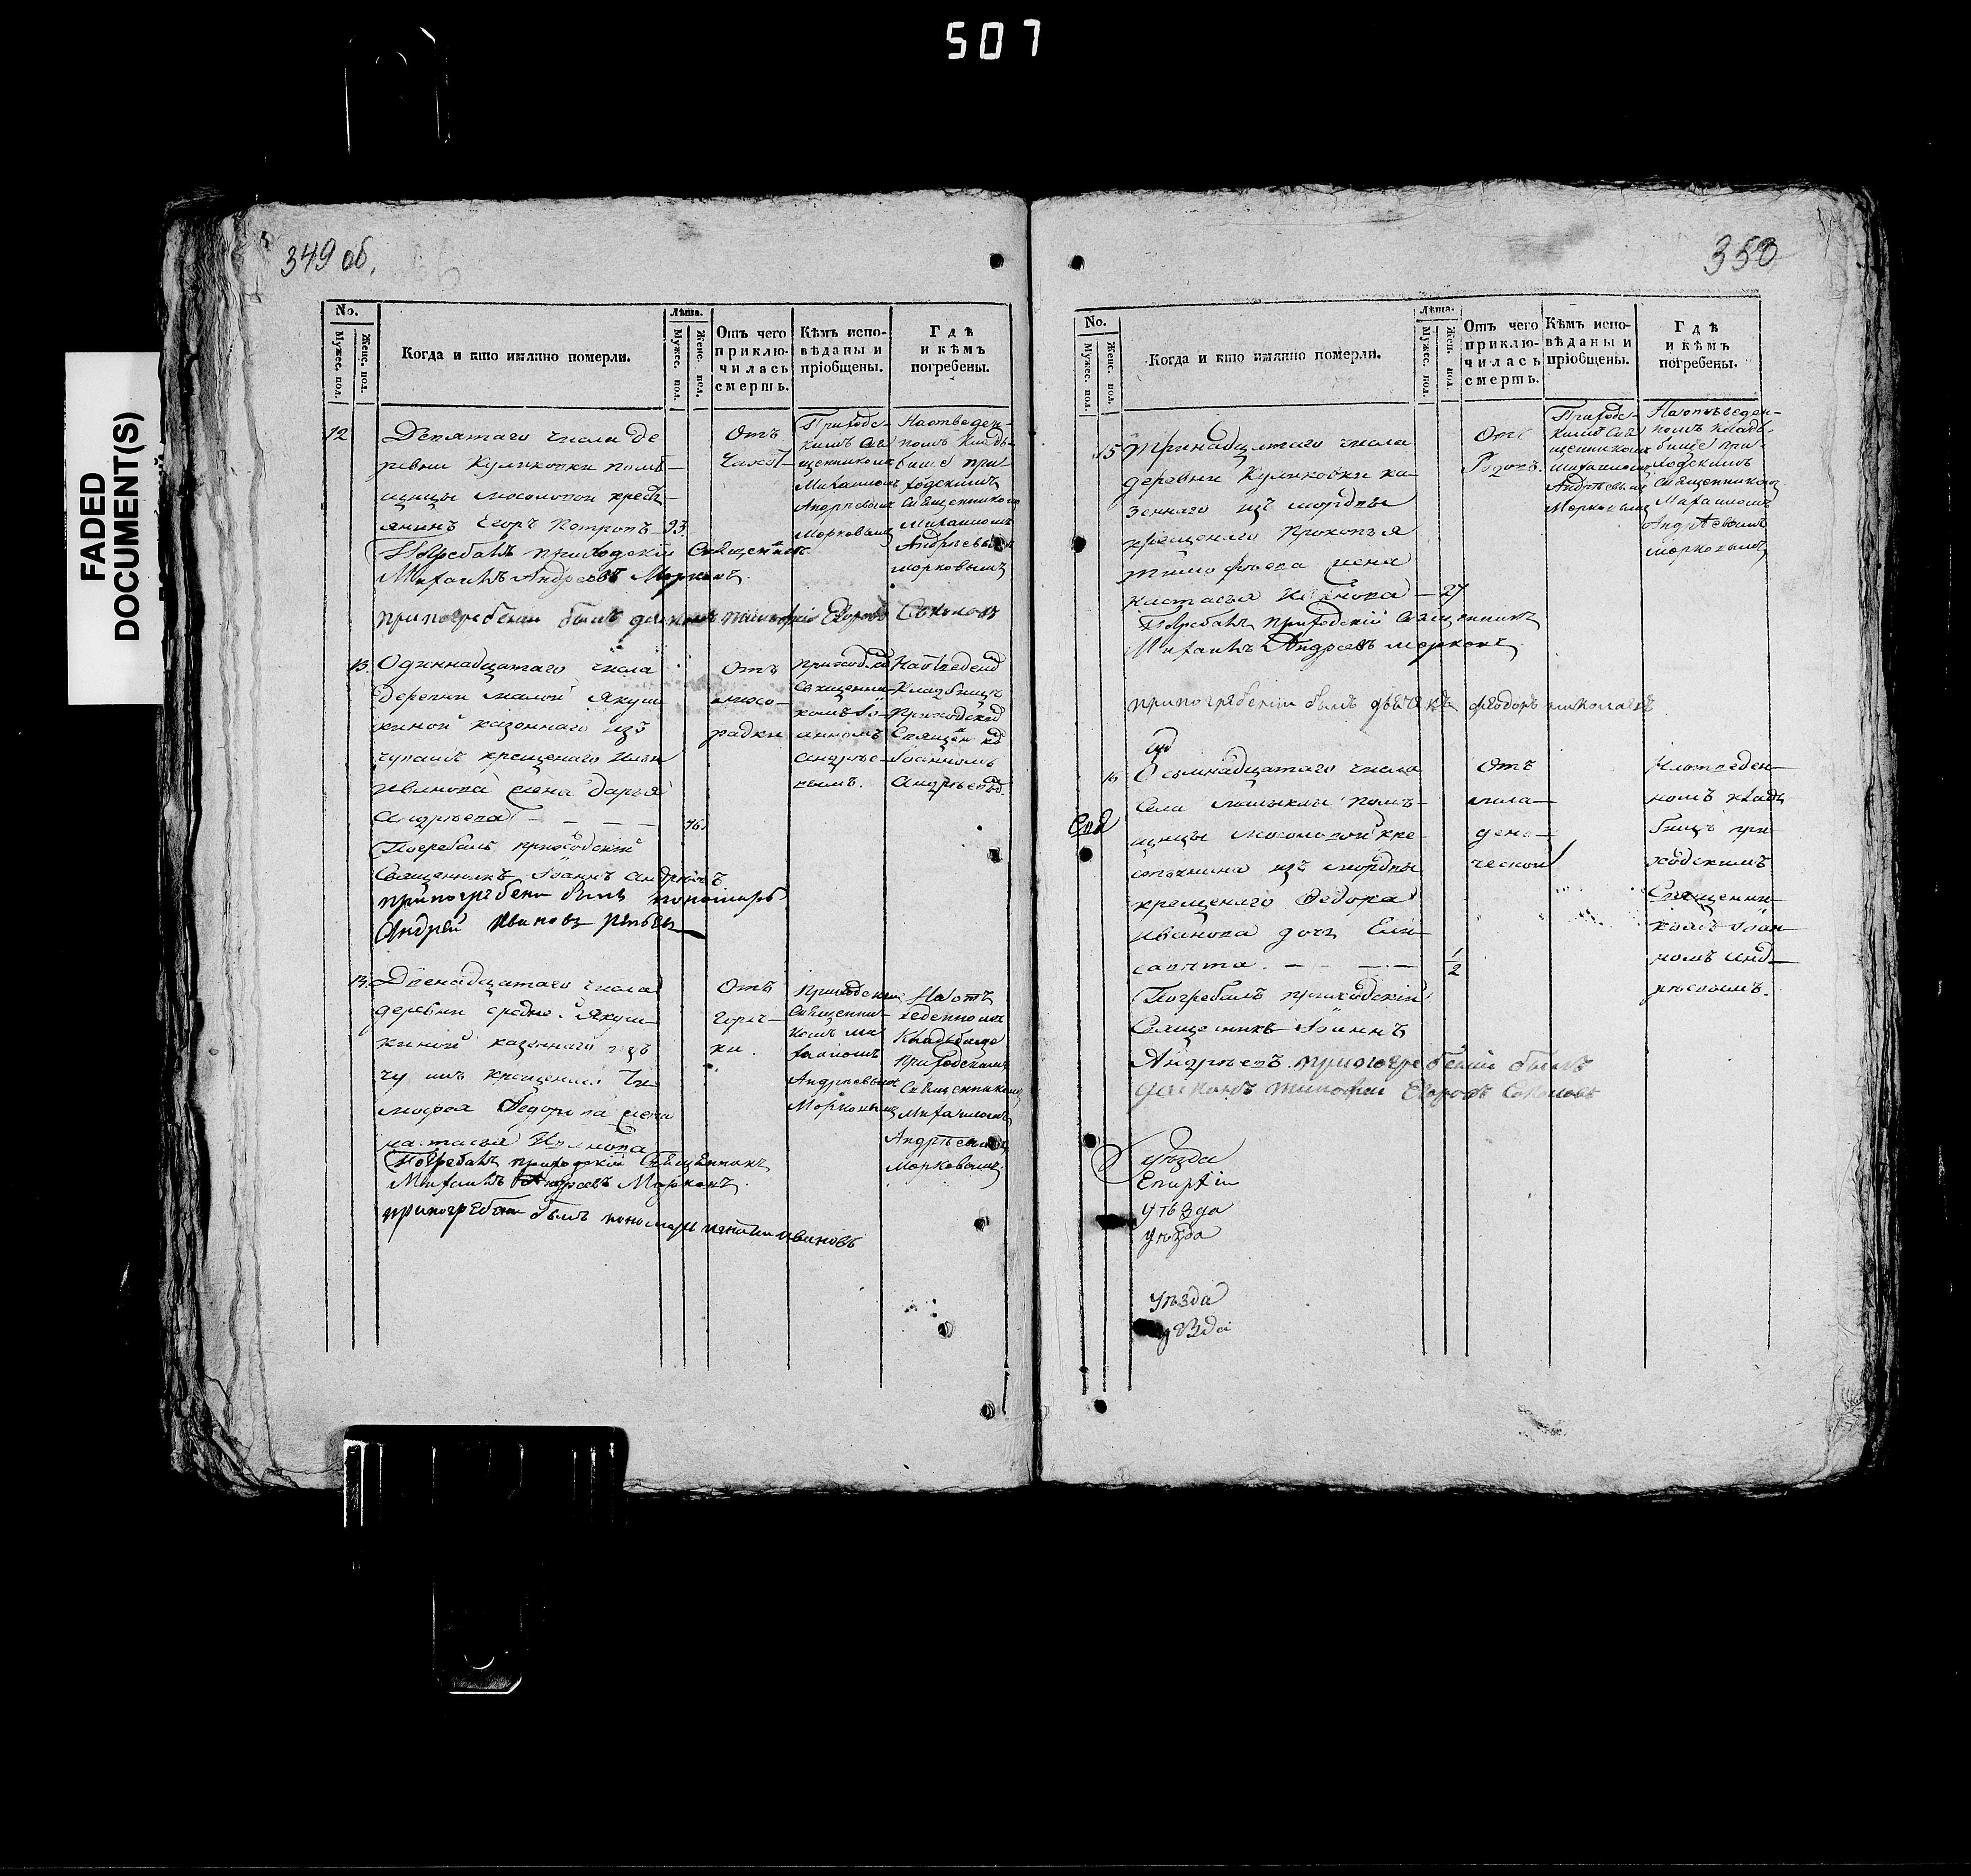 507
FADED
DOCUMENT(S)
349 об.
No.
Мужес. пол.
Женс. пол.
Когда и кто имянно померли.
Лѣта.
Мужес. пол.
Женс. пол.
Отъ чего
приклю-
чилась
смерть.
Кѣмъ испо-
вѣданы и
пріобщены.
Гдѣ
и кѣмъ
погребены.
12
Девятаго числа де
ревни Куликовки помѣ-
щицы Мосоловой кресть-
янинъ Егоръ Петровъ 93
Погребалъ приходскій Священникъ
Михаилъ Андреевъ Морковъ.
при погребении былъ дьяконъ Тимофей Егоровъ Соколовъ
Отъ
Приходс-
кимъ Свя
щенникомъ
Михаиломъ
Андреевымъ
Морковымъ
На отведен-
номъ кладь-
бище при
ходскимъ
Священникомъ
Михаиломъ
Андреевымъ
Морковымъ
13.
Одиннадцатаго числа
деревни малой Якуш
киной казеннаго изъ
чувашъ крещенаго Ильи
Иванова жена Дарья
Андреева — — — — 46
Погребалъ приходскій
Священникъ Іоаннъ Андреевъ
при погребении былъ пономарь
Андрей Ивановъ
Отъ
лихо-
радки
приход
священни-
комъ Іо-
анномъ
Андрѣе-
вымъ.
Приходской
Іоанномъ
14.
Двенадцатаго числа
деревни средне. Якуш-
киной казеннаго изъ
чувашъ крещенаго Ти
мофея Федорова жена
Настасья Иванова
Погребалъ приходскій Священникъ
Михаилъ Андреевъ Морковъ.
при погребении былъ пономарь Ивановъ
Отъ
горяч-
ки.
приходскимъ
Священни-
комъ Ми
хаиломъ
Андреевымъ
Морковымъ
На от-
веденномъ
Кладьбище
приходскимъ
Священникомъ
Михаиломъ
Андреевымъ
Морковымъ.
350
No.
Мужес. пол.
Женс. пол.
Когда и кто имянно померли.
Лѣта.
Мужес. пол.
Жен. пол.
Отъ чего
приклю-
чилась
смерть.
Кѣмъ испо-
вѣданы и
пріобщены.
Гдѣ
и кѣмъ
погребены.
15
Тринадцатаго числа
деревни Куликовки ка-
зеннаго изъ мордвы
крещенаго Прокопья
Тимофѣева жена
Настасья Иванова — 27
Погребалъ приходскій Священникъ
Михаилъ Андреевъ Морковъ.
при погребении былъ дьячекъ Феодоръ Николаевъ
Отъ
Родовъ.
Приходс-
кимъ Свя
щенникомъ
Михаиломъ
Андреевымъ
Морковымъ
На отведен-
номъ кладь-
бище при-
ходскимъ
Священникомъ
Михаиломъ
Андреевымъ
Морковымъ
16
Осьмнадцатаго числа
Села помѣ-
щицы Мосоловой кре-
стьянина изъ мордвы
крещенаго Федора
Иванова дочь Ели-
савета. — — — 1/2
Погребалъ приходскій
Священникъ Іоаннъ
Андреевъ. при погребении былъ
дьяконъ Тимофей Егоровъ Соколовъ
Отъ
мла-
ден-
ческой
На отведен-
номъ кладь
бище при
ходскимъ
Священни-
комъ Іоан-
номъ Анд-
рѣевымъ.
уѣзда
уѣзда
уѣзда
уѣзда
уѣзда